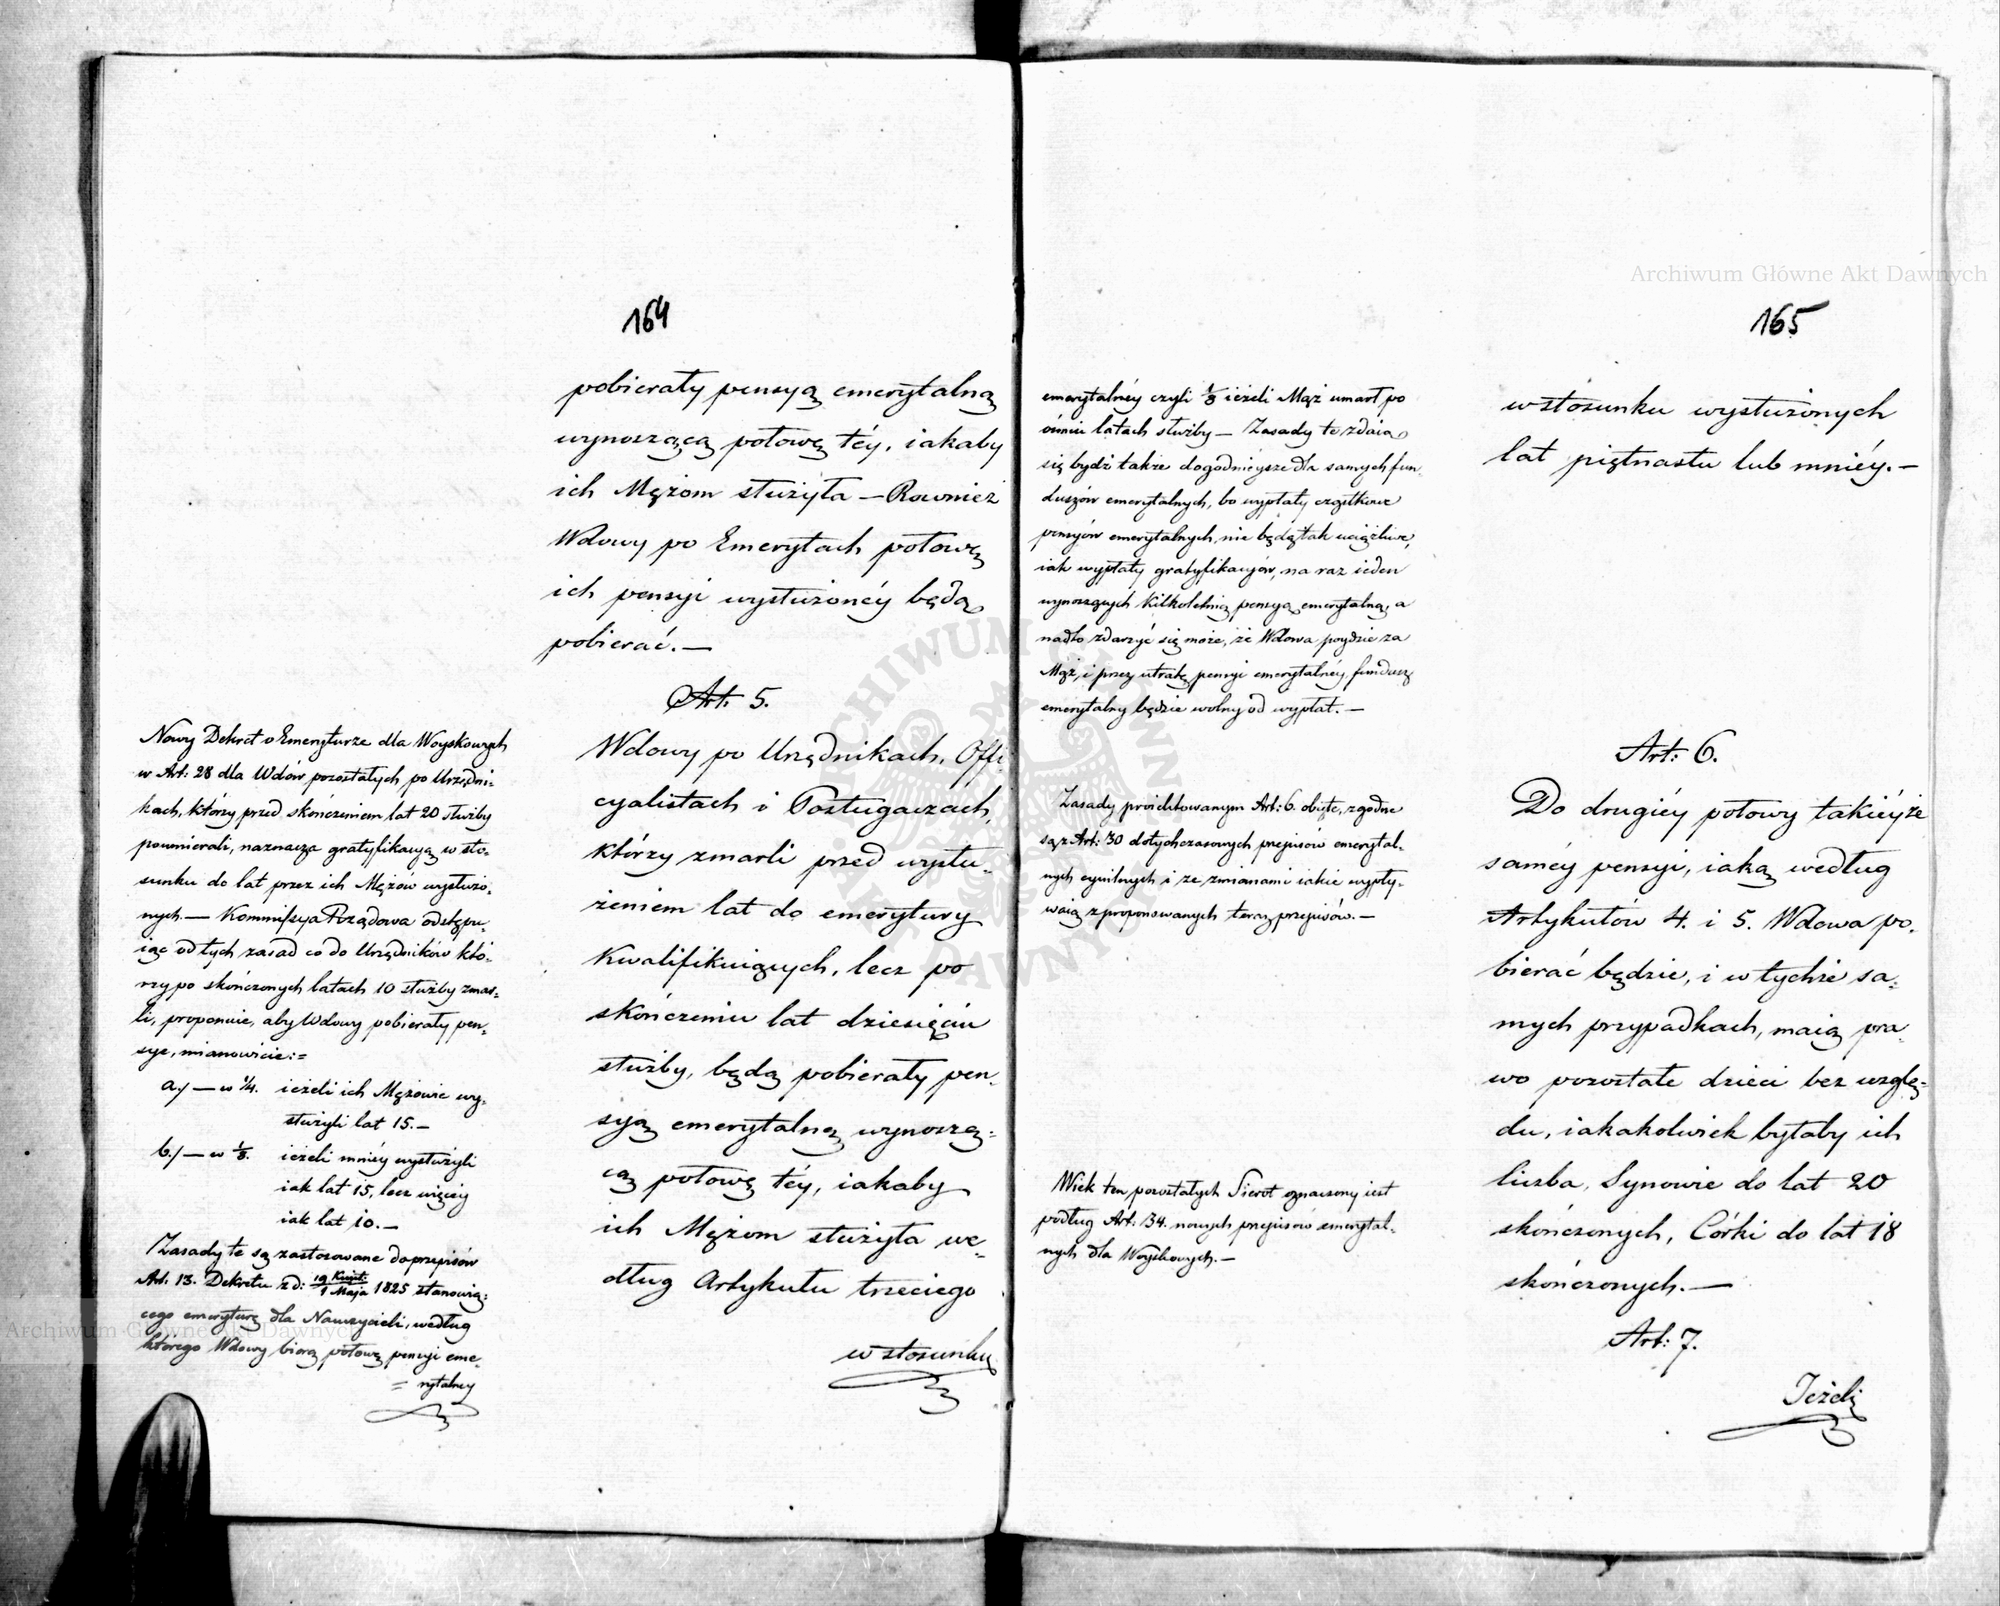 164
pobierały pensyą emerytalną
wynoszącą połowę téy, iakaby
ich Mężom służyła — Rownież
Wdowy po Emerytach połowę
ich pensyi wysłużonéy będą
pobierać. —
Art: 5.
Wdowy po Urzędnikach, Offi-
cyalistach i Posługaczach,
którzy zmarli przed wysłu-
żeniem lat do emerytury
kwalifikuiących, lecz po
skończeniu lat dziesięciu
służby, będą pobierały pen-
syą emerytalną wynoszą-
cą połowę téy, iakaby
ich Mężom służyła we-
dług Artykułu trzeciego
w stosunku
Nowy Dekret o Emeryturze dla Woyskowych
w Art: 28 dla Wdów pozostałych po Urzędni-
kach, którzy przed skończeniem lat 20 służby
poumierali, naznacza gratyfikacyą w sto-
sunku do lat przez ich Mężów wysłużo-
nych. — Kommissya Rządowa odstępu-
iąc od tych zasad co do Urzędników któ-
rzy po skończonych latach 10 służby zmar-
li, proponuie, aby Wdowy pobierały pen-
sye, mianowicie:=
a.) — w 1/4. ieżeli ich Mężowie wy-
służyli lat 15. —
b.) — w 1/8. ieżeli mniéy wysłużyli
iak lat 15, lecz więcéy
iak lat 10. —
Zasady te są zastosowane do przepisów
Art. 13. Dekretu z d: 19 Kwiet:/1 Maja 1825 stanowią-
cego emeryturę dla Nauczycieli, według
którego Wdowy biorą połowę pensyi eme-
= rytalney
165
emerytalnéy czyli 1/8 ieżeli Mąż umarł po
ośmiu latach służby — Zasady te zdaią
się bydź także dogodnieysze dla samych fun-
duszów emerytalnych, bo wypłaty cząstkowe
pensyów emerytalnych, nie będą tak uciążliwe,
iak wypłaty gratyfikacyów, na raz ieden
wynoszących kilkoletnią pensyą emerytalną, a
nadto zdarzyć się może, że Wdowa poydzie za
Mąż, i przez utratę pensyi emerytalnéy, fundusz
emerytalny będzie wolny od wypłat. —
Zasady proiektowanym Art: 6. obięte, zgodne
są z Art: 30 dotychczasowych przepisów emerytal-
nych cywilnych i ze zmianami iakie wypły-
waią z proponowanych teraz przepisów. —
Wiek ten pozostałych Sierot oznaczony iest
podług Art: 34. nowych przepisów emerytal-
nych dla Woyskowych. —
w stosunku wysłużonych
lat piętnastu lub mniéy. —
Art: 6.
Do drugiéy połowy takiéyże
saméy pensyi, iaką według
Artykułów 4. i 5. Wdowa po-
bierać będzie, i w tychże sa-
mych przypadkach, maią pra-
wo pozostałe dzieci bez wzglę-
du, iakakolwiek byłaby ich
liczba, Synowie do lat 20
skończonych, Córki do lat 18
skończonych. —
Art: 7.
Ieżeli
Archiwum Główne Akt Dawnych
Archiwum Główne Akt Dawnych